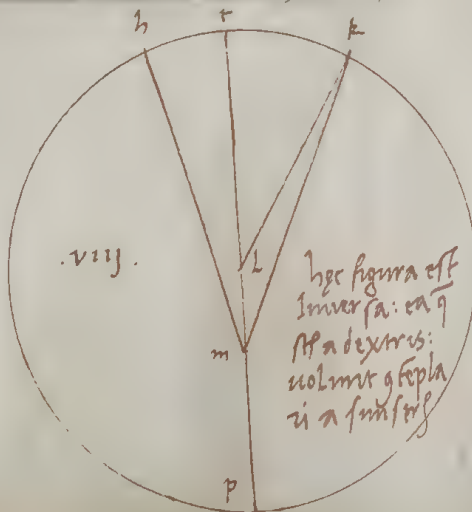 h r k
. VIIJ .
L
m
hęc figura est
Inversa: ea q̄
st̄ a dextris:
volunt
vi a sinistris
p